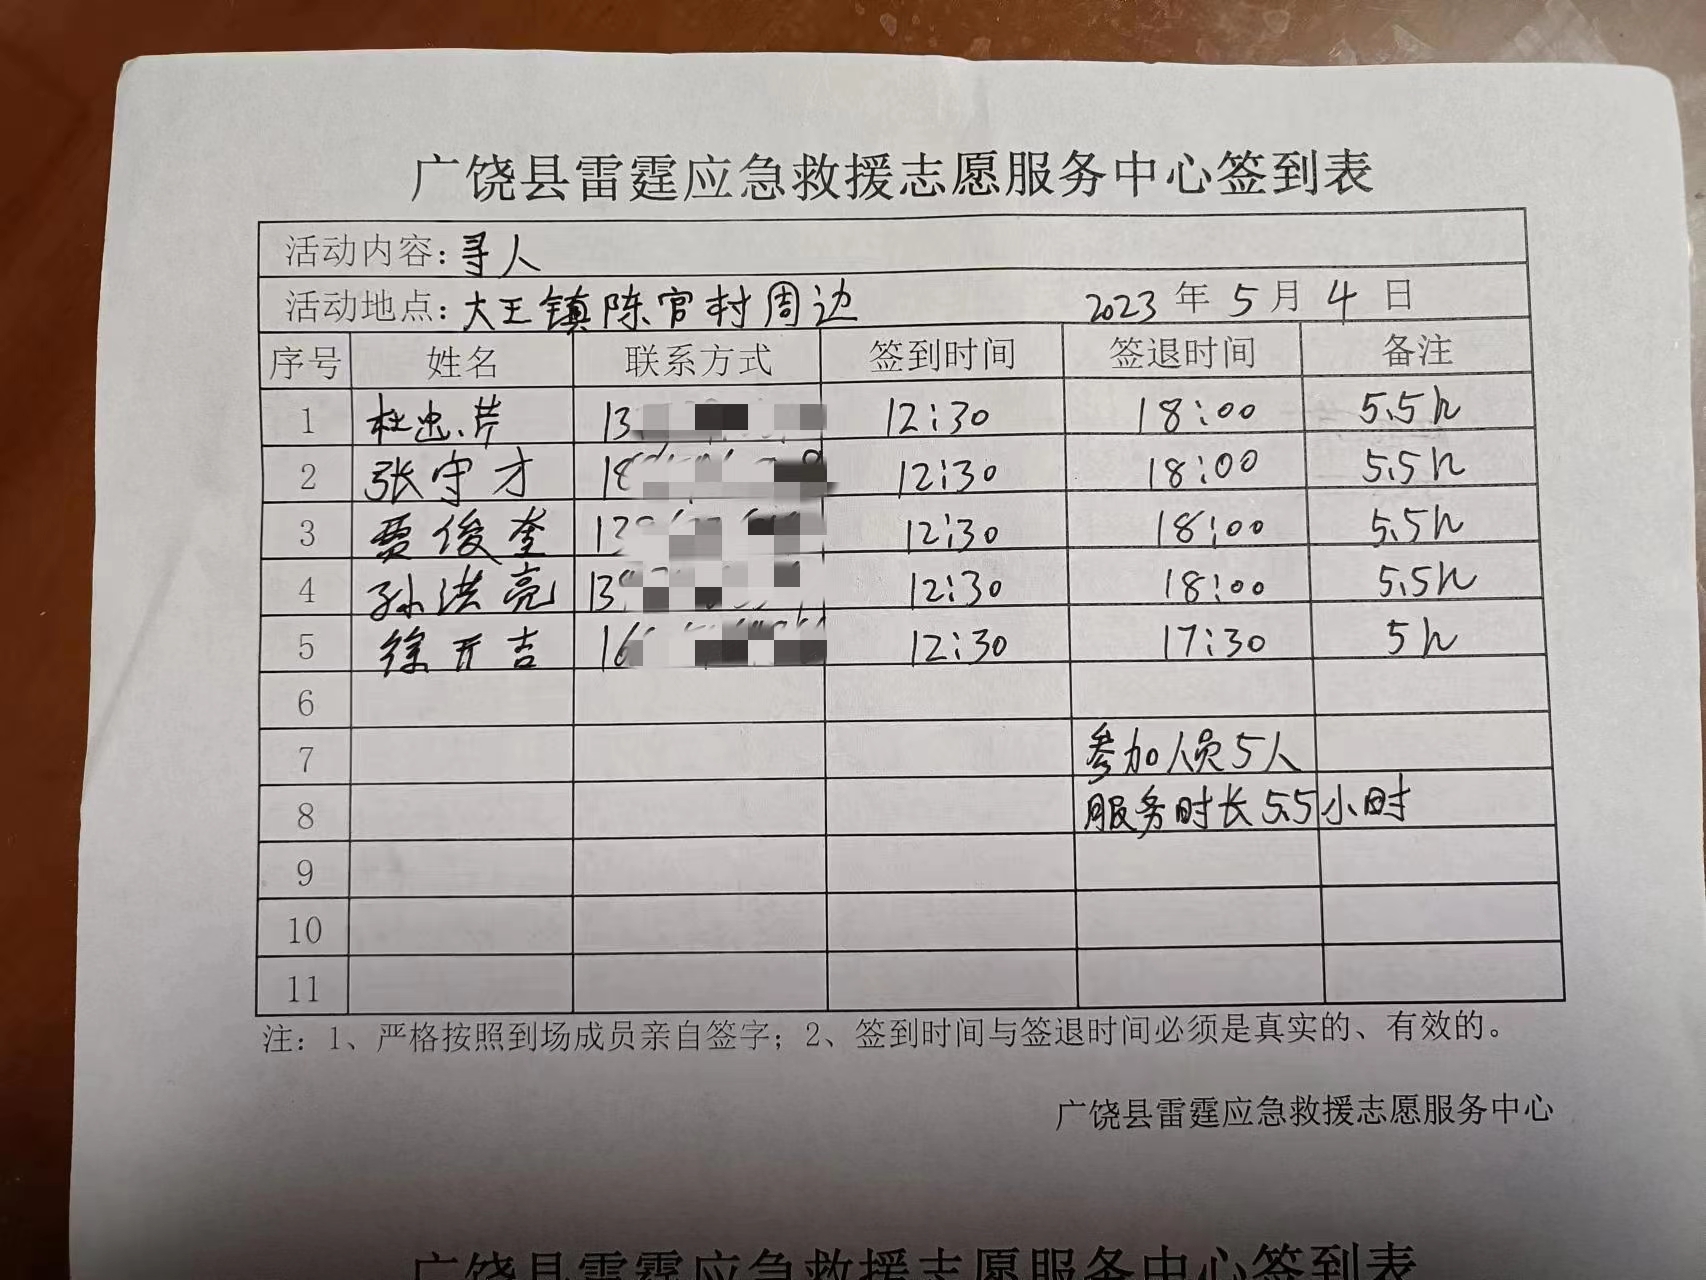 广饶县雷霆应急救援志愿服务中心签到表
活动内容：寻人
活动地点：大王镇陈官村周边 2023年5月4日
序号 姓名 联系方式 签到时间 签退时间 备注
1 杜忠芹 13 12:30 18:00 5.5h
2 张守才 18 12:30 18:00 5.5h
3 贾俊奎 13 12:30 18:00 5.5h
4 孙洪亮 13 12:30 18:00 5.5h
5 徐开吉 16 12:30 17:30 5h
6
7 参加人员5人
8 服务时长5.5小时
9
10
11
注：1、严格按照到场成员亲自签字；2、签到时间与签退时间必须是真实的、有效的。
广饶县雷霆应急救援志愿服务中心
广饶县雷霆应急救援志愿服务中心签到表